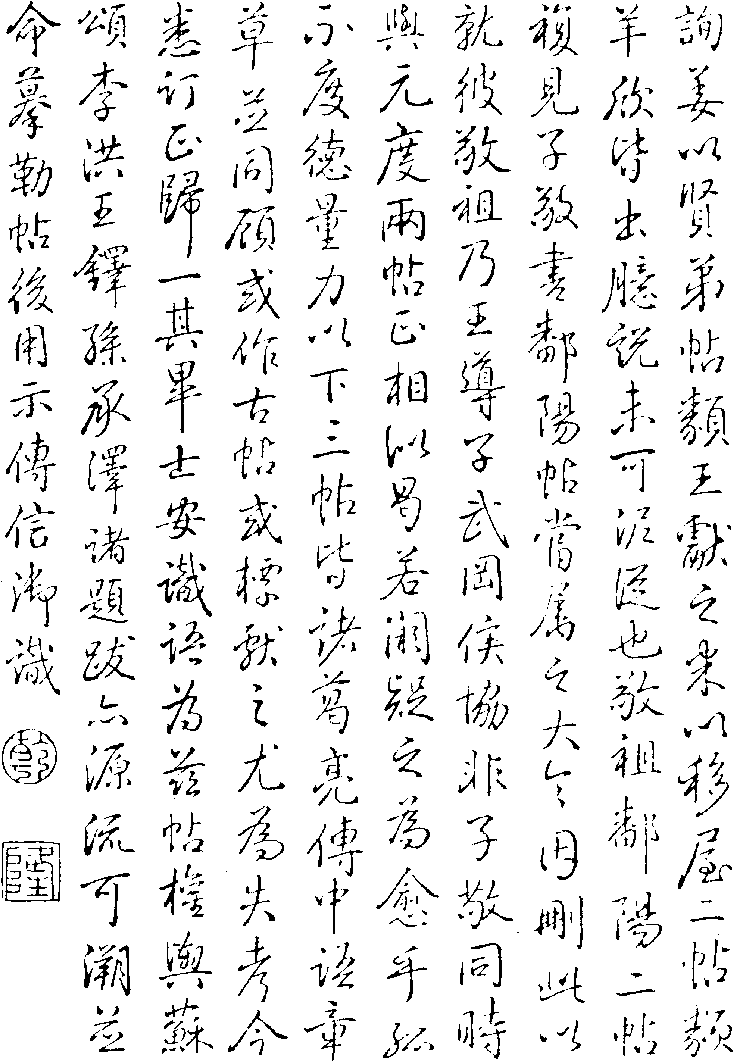 詢姜以賢弟帖類王獻之米以移屋二帖類
羊欣皆出臆說未可泥從也敬祖鄱陽二帖
複見子敬書鄱陽帖當屬之大令因刪此以
就彼敬祖乃王導子武岡侯協非子敬同時
與元度兩帖正相似曷若闕疑之為愈乎孤
不度德量力以下三帖皆諸葛亮傳中語章
草並同顧或作古帖或標獻之尤為失考今
悉訂正歸一其畢士安識語為茲帖權輿蘇
頌李洪王鐸孫承澤諸題跋亦源流可溯並
命摹勒帖後用示傳信御識
乾
隆